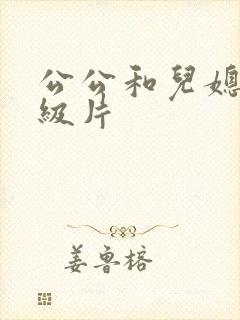 公公和兒媳
級片
姜鲁榕